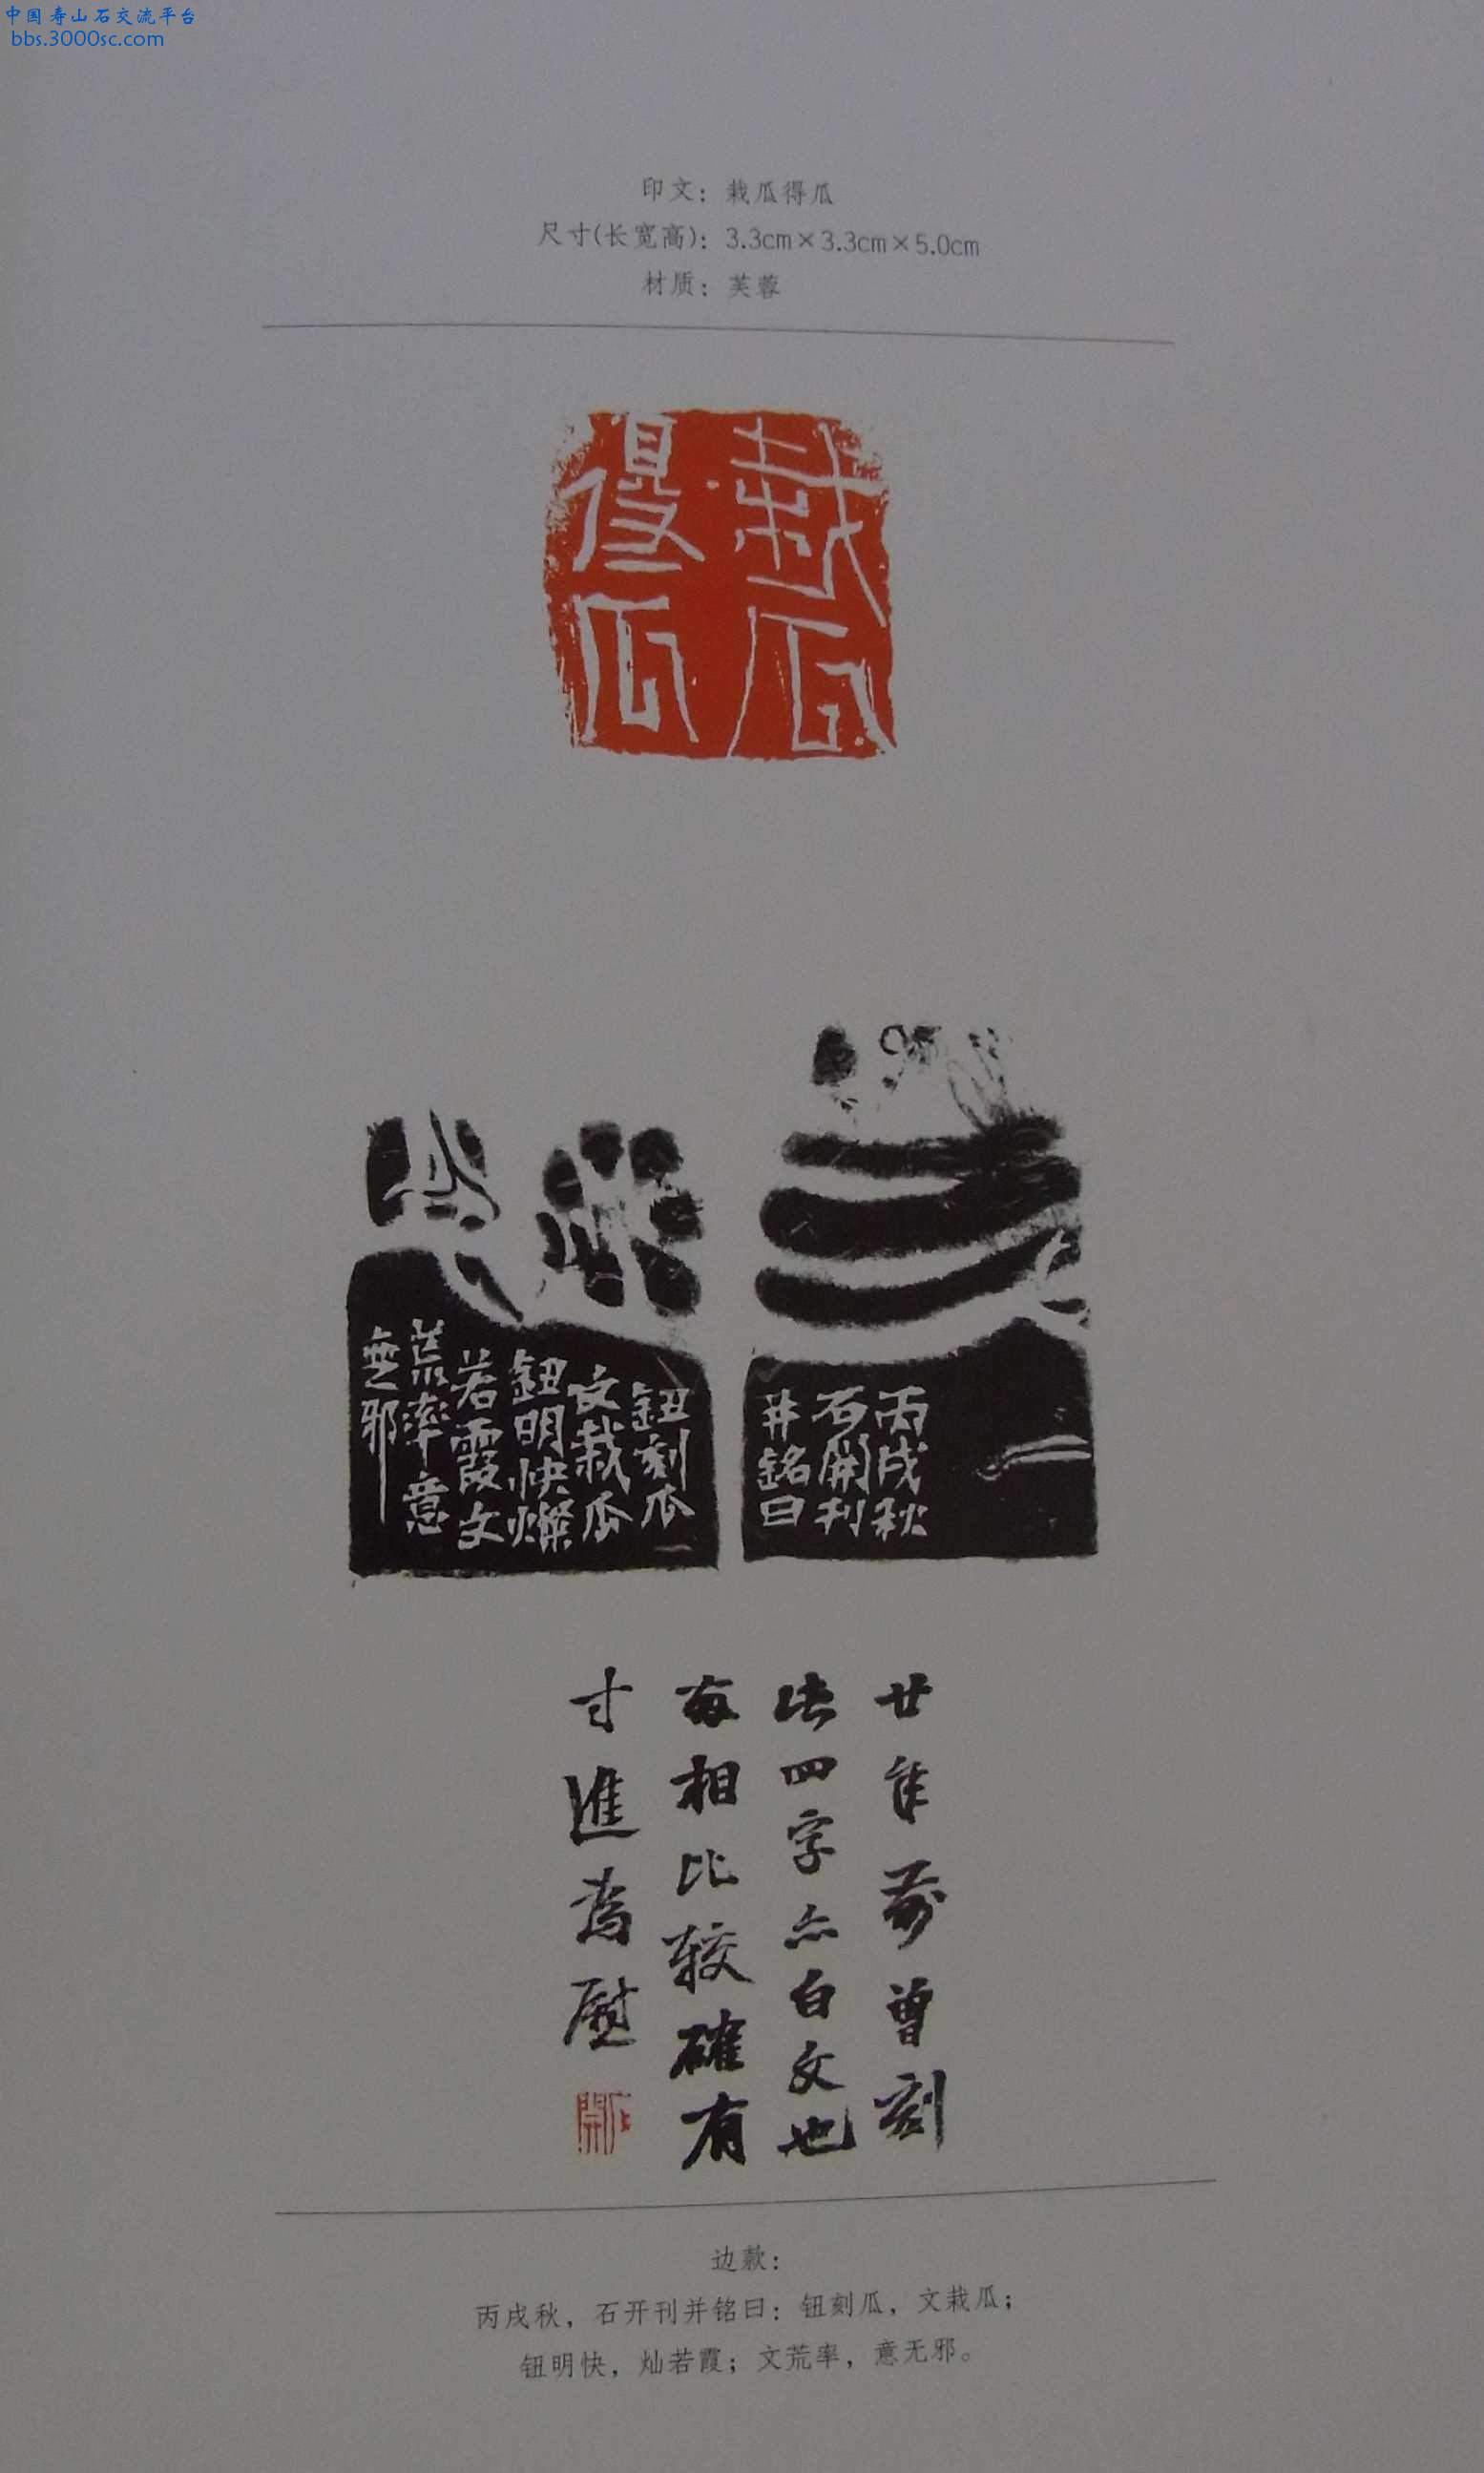 中国寿山石交流平台
bbs.3000sc.com
印文：栽瓜得瓜
尺寸(长宽高)：3.3cm×3.3cm×5.0cm
材质：芙蓉
栽瓜
得瓜
丙戌秋
石開刊
并銘曰
鈕刻瓜
文栽瓜
鈕明快燦
若霞文
荒率意
無邪
廿年前曾刻
此四字亦白文也
夜相比較確有
寸進為慰
石開
边款：
丙戌秋，石开刊并铭曰：钮刻瓜，文栽瓜；
钮明快，灿若霞；文荒率，意无邪。